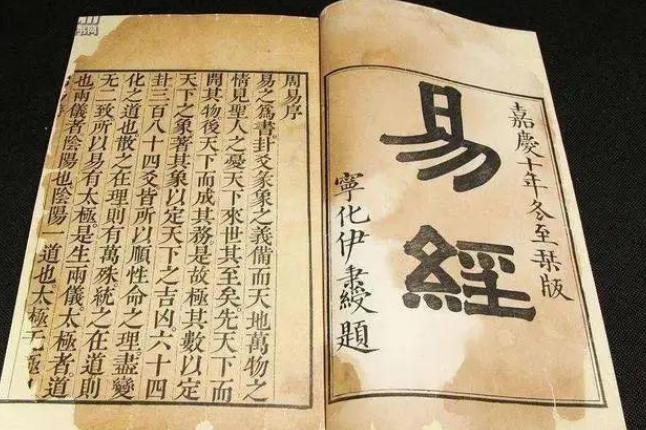 嘉慶十年冬至栞版
易經
寧化伊秉綬題
周易序
易之爲書卦爻彖象之義備而天地萬物之
情見聖人之憂天下來世其至矣。先天下而
開其物後天下而成其務。是故極其數以定
天下之象著其象以定天下之吉凶。六十四
卦三百八十四爻皆所以順性命之理。盡變
化之道也散之在理則有萬殊。統之在道則
无二致所以易有太極。是生兩儀太極者。道
也兩儀者陰陽也陰陽一道也太極无極